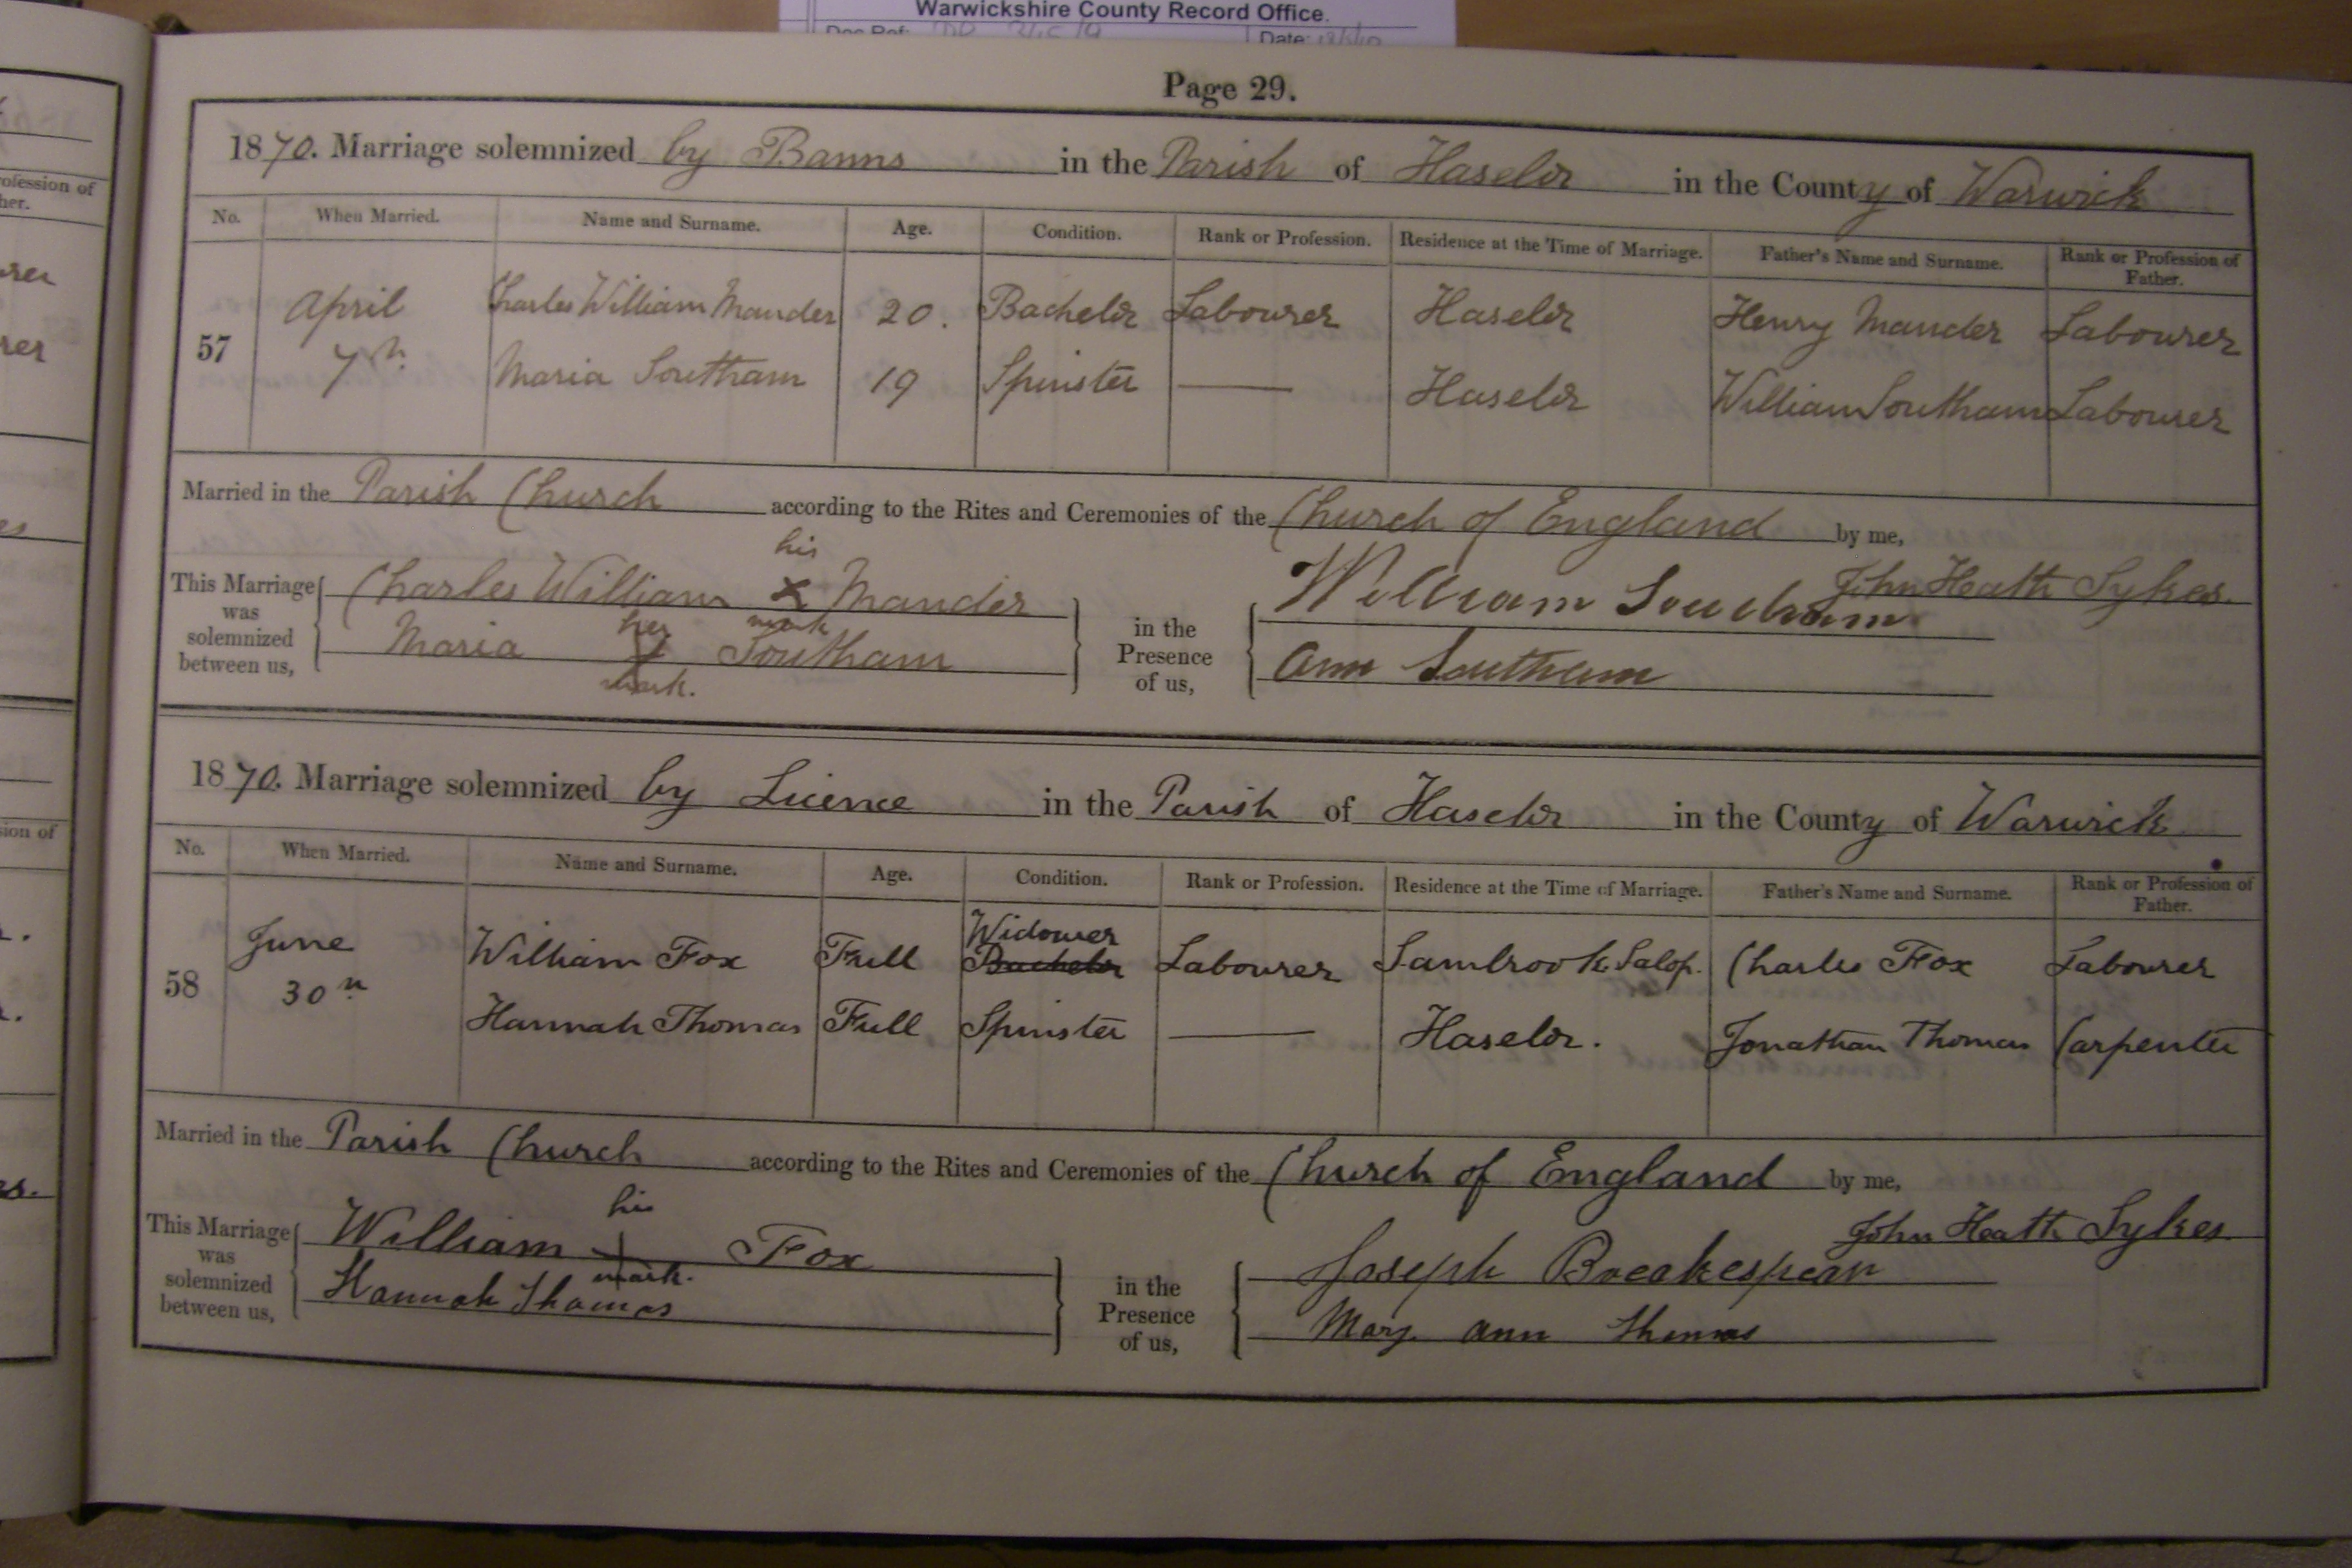 Warwickshire County Record Office.
Doc Ref: Date:
Page 29.
1870. Marriage solemnized by Banns in the Parish of Haselor in the County of Warwick
No. When Married. Name and Surname. Age. Condition. Rank or Profession. Residence at the Time of Marriage. Father's Name and Surname. Rank or Profession of Father.
57 April 7th. Charles William Mander 20. Bachelor Labourer Haselor Henry Mander Labourer
Maria Southam 19 Spinster Haselor William Southam Labourer
Married in the Parish Church according to the Rites and Ceremonies of the Church of England by me,
John Heath Sykes.
This Marriage was solemnized between us,
Charles William his x mark Mander
Maria her x mark. Southam
in the Presence of us,
William Southam
Ann Southam
1870. Marriage solemnized by Licence in the Parish of Haselor in the County of Warwick
No. When Married. Name and Surname. Age. Condition. Rank or Profession. Residence at the Time of Marriage. Father's Name and Surname. Rank or Profession of Father.
58 June 30th William Fox Full Widower Bachelor Labourer Sambrook Salop. Charles Fox Labourer
Hannah Thomas Full Spinster Haselor. Jonathan Thomas Carpenter
Married in the Parish Church according to the Rites and Ceremonies of the Church of England by me,
John Heath Sykes
This Marriage was solemnized between us,
William his + mark. Fox
Hannah Thomas
in the Presence of us,
Joseph Breakespear
Mary Ann Thomas